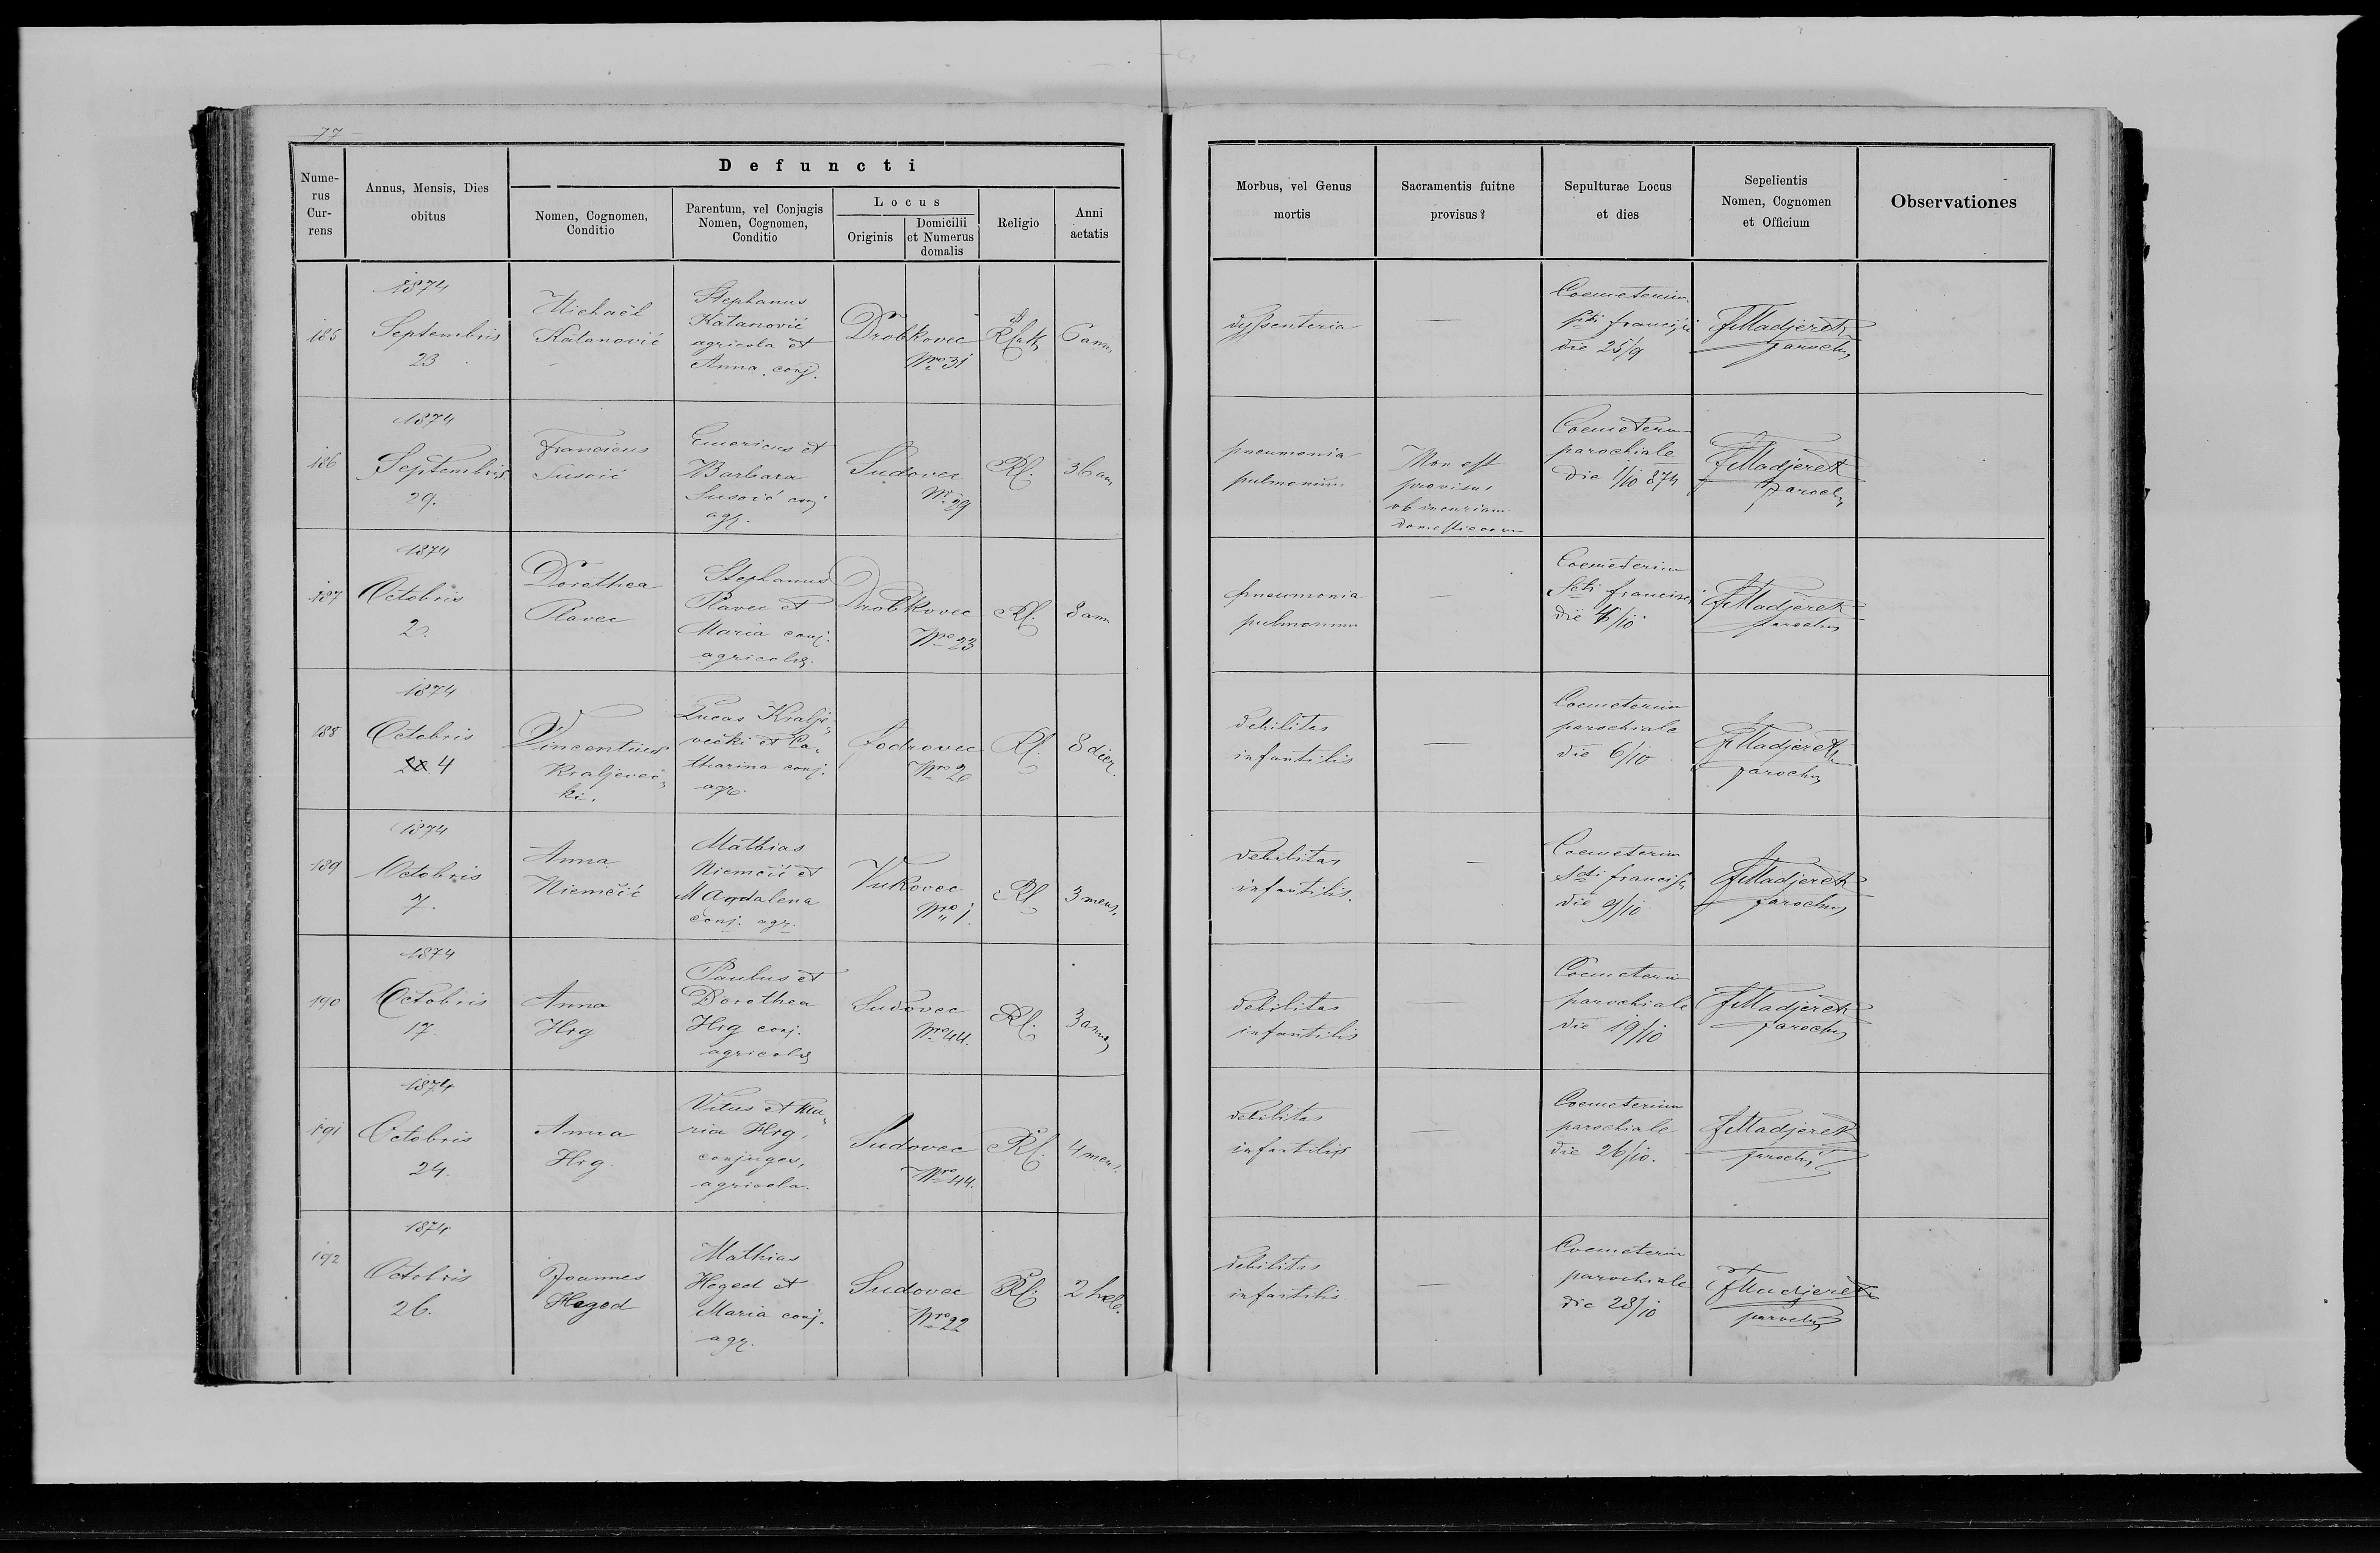 77
Defuncti
Nume-
rus
Cur-
rens
Annus, Mensis, Dies
obitus
Nomen, Cognomen,
Conditio
Parentum, vel Conjugis
Nomen, Cognomen,
Conditio
Locus
Originis
Domicilii
et Numerus
domalis
Religio
Anni
aetatis
Morbus, vel Genus
mortis
Sacramentis fuitne
provisus?
Sepulturae Locus
et dies
Sepelientis
Nomen, Cognomen
et Officium
Observationes
185
1874
Septembris
23
Michaël
Katanović
Stephanus
Katanović
agricola et
Anna conj.
Drobkovec
Nro 31
6 ann
dyssenteria
—
Coemeterium
Scti francisci
die 25/9
FMadjerek
parochus
186
1874
Septembris
29.
Franciscus
Susoić
Emericus et
Barbara
Susoić conj
agr.
Sudovec
Nr 29
Rl.
36 an
pneumonia
pulmonum
Non est
provisus
ob incuriam
domesticorum
Coemeterium
parochiale
die 1/10 874
FMadjerek
paroch
187
1874
Octobris
2.
Dorothea
Plavec
Stephanus
Plavec et
Maria conj.
agricolae.
Drobkovec
Nro 23
Rl.
8 ann
pneumonia
pulmonum
—
Coemeterium
Scti francisci
die 4/10
FMadjerek
parochus
188
1874
Octobris
4
Vincentius
Kraljeveč„
ki.
Lucas Kralje„
večki et Ca„
tharina conj.
agr.
Fodrovec
Nro 26
Rl.
8 dier.
debilitas
infantilis
—
Coemeterium
parochiale
die 6/10
FMadjerek
parochus
189
1874
Octobris
7.
Anna
Niemčić
Mathias
Niemčić et
Magdalena
conj. agr.
Vukovec
Nro 1.
Rl
3 mens.
debilitas
infantilis.
—
Coemeterium
Scti francisci
die 9/10
FMadjerek
parochus
190
1874
Octobris
17.
Anna
Hrg
Paulus et
Dorothea
Hrg conj.
agricolae
Sudovec
Nro 44.
Rl.
3 annor
debilitas
infantilis
—
Coemeterium
parochiale
die 19/10
FMadjerek
parochus
191
1874
Octobris
24.
Anna
Hrg.
Vitus et Ma„
ria Hrg,
conjuges,
agricola.
Sudovec
Nro 44.
Rl.
4 mens.
debilitas
infantilis
—
Coemeterium
parochiale
die 26/10.
FMadjerek
parochus
192
1874
Octobris
26.
Joannes
Heged
Mathias
Heged et
Maria conj.
agr.
Sudovec
Nro 22
Rl.
debilitas
infantilis
—
Coemeterium
parochiale
die 28/10
FMadjerek
parochus